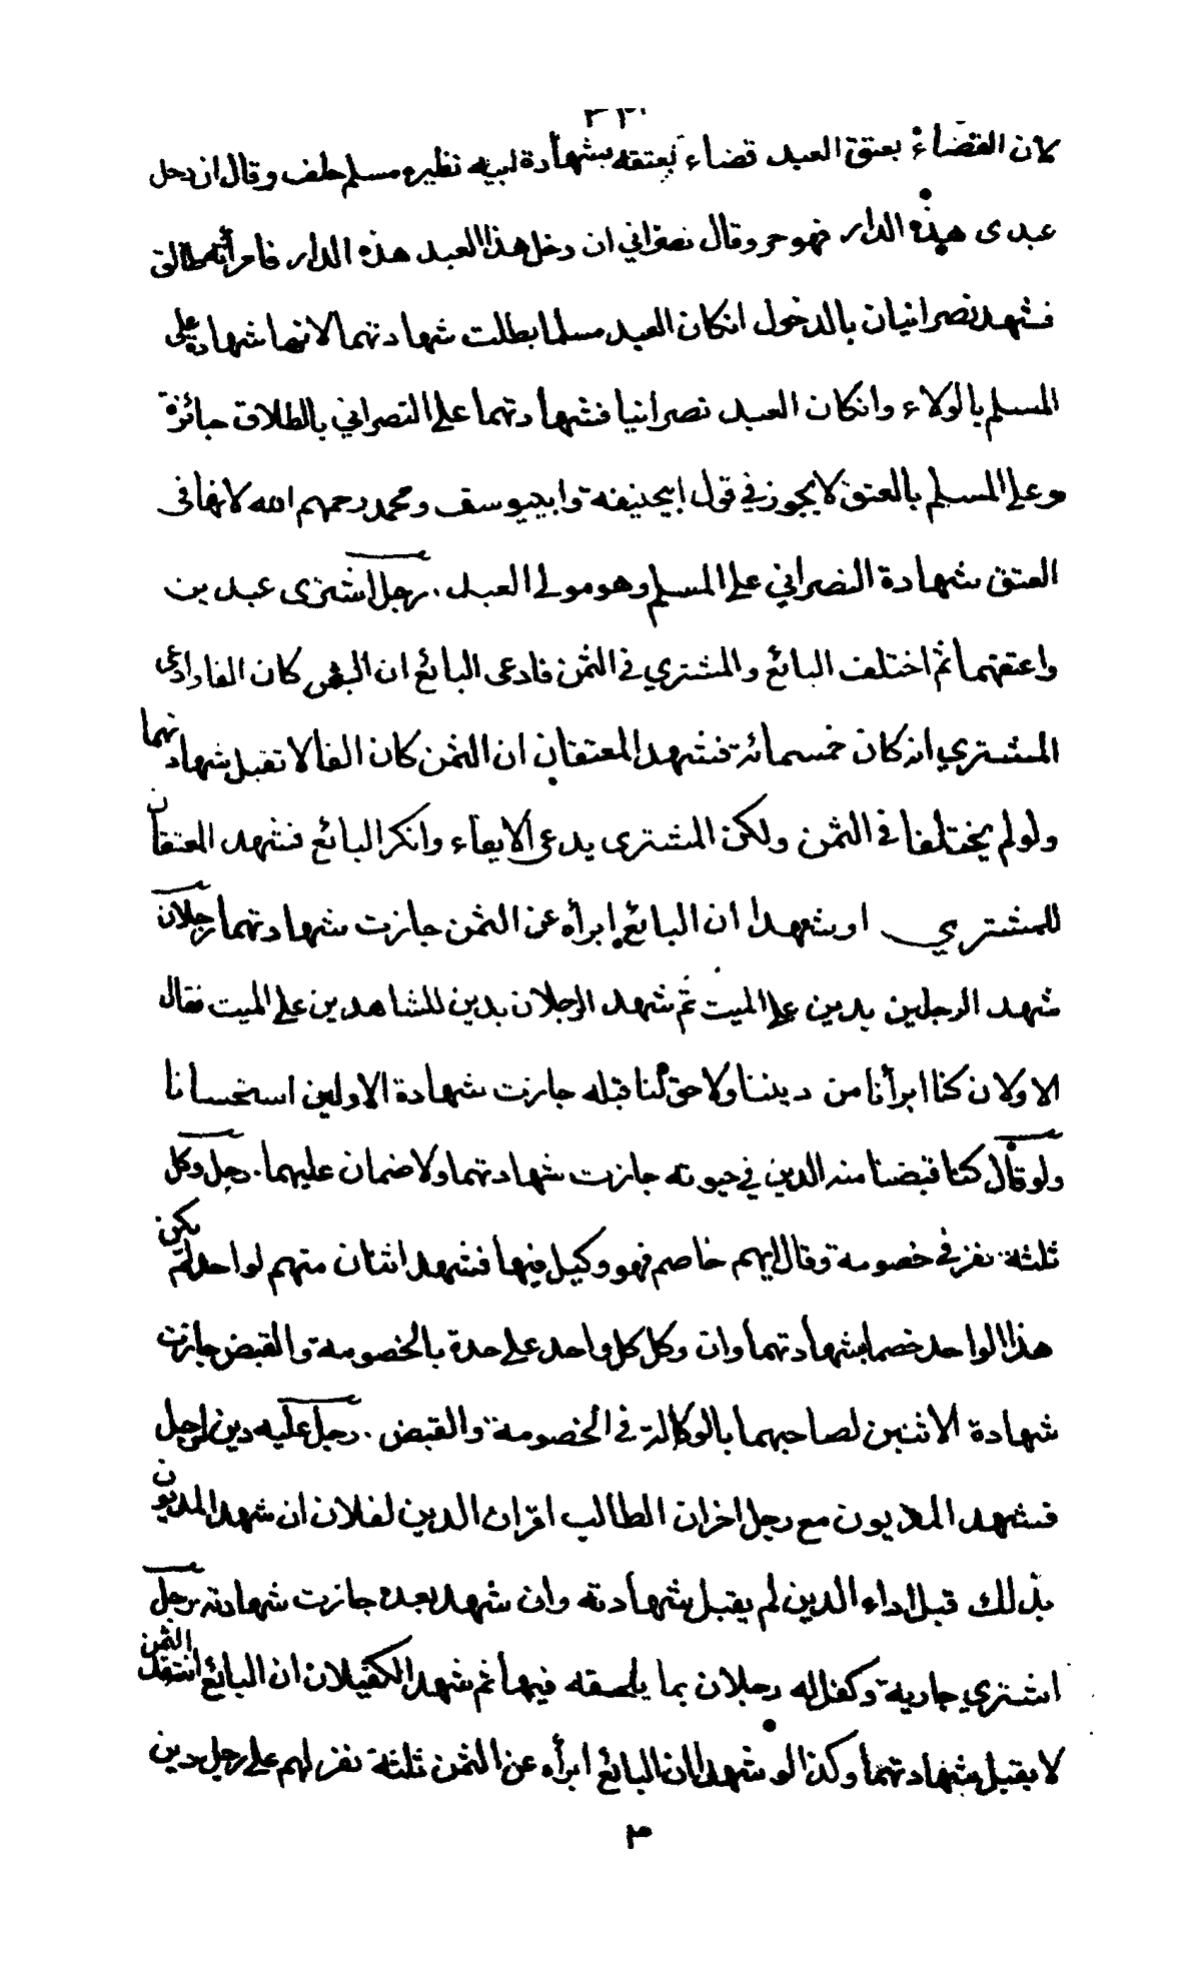 كان القضاء بعتق العبد قضاء بعتقه بشهادة لبينه نظيره مسلم حلف وقال ان دخل
عبدى هذه الدار فهو حر وقال نصراني ان دخل هذا العبد هذه الدار فامرأته طالق
فشهد نصرانيان بالدخول انكان العبد مسلما بطلت شهادتهما لانها شهادة على
المسلم بالولاء وانكان العبد نصرانيا فشهادتهما على النصراني بالطلاق جائزة
وعلى المسلم بالعتق لا يجوز في قول ابيحنيفة وابييوسف ومحمد رحمهم الله لانها فى
العتق شهادة النصراني على المسلم وهو مولى العبد . رجل اشترى عبدين
واعتقهما ثم اختلف البائع والمشتري في الثمن فادعى البائع ان الثمن كان الفا وادعى
المشتري انه كان خمسمائة فشهد المعتقان ان الثمن كان الفا لا تقبل شهادتهما
ولو لم يختلفا في الثمن ولكن المشترى يدعى الايفاء وانكر البائع فشهد المعتقان
للمشتري او شهدا ان البائع ابرأه عن الثمن جازت شهادتهما رجلان
شهد الرجلين بدين على الميت ثم شهد الرجلان بدين للشاهدين على الميت فقال
الاولان كنا ابرأنا من ديننا ولا حق لنا قبله جازت شهادة الاولين استحسانا
ولو قال كنا قبضنا منه الدين في حيوته جازت شهادتهما ولا ضمان عليهما . رجل وكل
ثلثة نفر في خصومة وقال ايهم خاصم فهو وكيل فيها فشهد اثنان منهم لواحد لم يكن
هذا الواحد خصما بشهادتهما وان وكل كل واحد على حدة بالخصومة والقبض جازت
شهادة الاثنين لصاحبهما بالوكالة في الخصومة والقبض . رجل عليه دين لرجل
فشهد المديون مع رجل اخر ان الطالب اقر ان الدين لفلان ان شهد المديون
بذلك قبل اداء الدين لم يقبل شهادته وان شهد بعده جازت شهادته رجل
اشتري جارية وكفل له رجلان بما يلحقه فيها ثم شهد الكفيلان ان البائع انتقد الثمن
لا يقبل شهادتهما وكذا لو شهدا ان البائع ابرأه عن الثمن ثلثة نفر لهم على رجل دين
٣